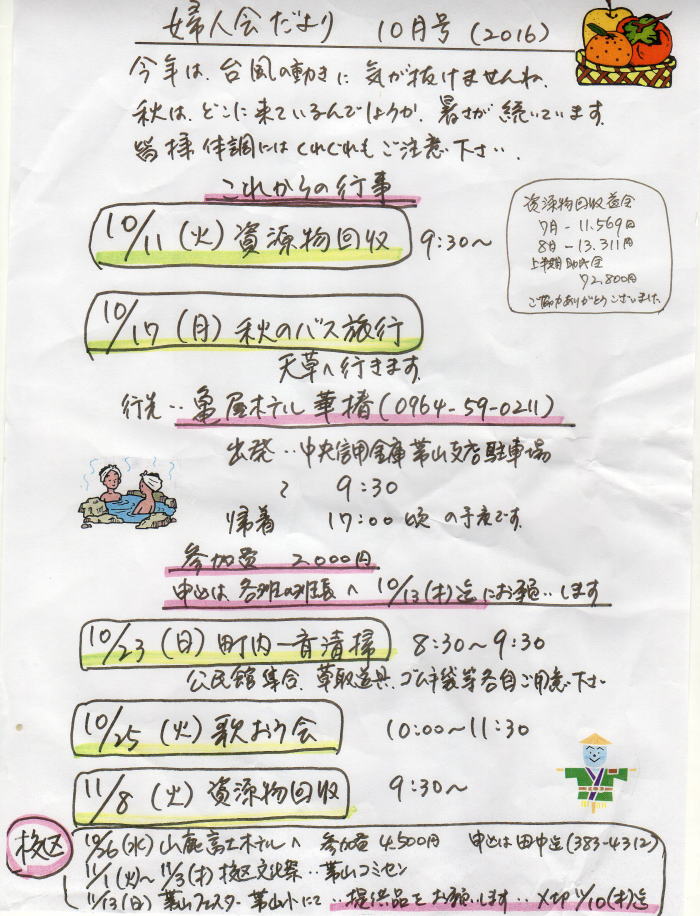 婦人会だより 10月号 (2016)
今年は、台風の動きに 気が抜けませんね、
秋は、どこに来ているんでしょうか、暑さが 続いています。
皆様 体調には くれぐれも ご注意 下さい.
これからの行事
資源物回収益金
7月 - 11.569円
8月 - 13.311円
上半期助成金
72.800円
ご協力ありがとうございました
10/11 (火) 資源物回収 9:30〜
10/17 (月) 秋のバス旅行
天草へ行きます。
行先‥亀屋ホテル 華椿 (0964-59-0211)
出発‥中央信用金庫 葉山支店駐車場
〜 9:30
帰着 17:00 頃 の予定です。
参加費 2.000円
申込は 各班の班長へ 10/13(木)迄にお願いします
10/23 (日) 町内一斉清掃 8:30〜9:30
公民館集合、草取道具、ゴム手袋等各自ご用意下さい
10/25 (火) 歌おう会 10:00〜11:30
11/8 (火) 資源物回収 9:30〜
校区
10/26(水) 山鹿 富士ホテルへ 参加費 4,500円 申込は 田中迄(383-4312)
11/1(火)〜11/3(木) 校区文化祭‥葉山コミセン
11/13(日) 葉山フェスタ 葉山小にて‥提供品をお願いします‥〆切 11/10(木)迄